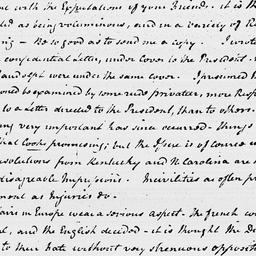 out with the Expectations of your Friend. it is th
ded as being voluminous, and in a variety of R
ing - Be so good as to send me a copy. I wrote
confidential Letter, under cover to the President.
and Sept were under the same cover. I presumed t
would be examined by some rude Privateer, more Resp
to a Letter directed to the President, than to others.
any very important has since occurred. things
that look promising; but the Issue is of course un
resolutions from Kentucky and N Carolina are n
disagreeable Impressions. Incivilities as often pr
ment as Injuries do.
fairs in Europe wear a serious aspect. the french co
ed, and the English decided - it is thought the D
to their hate without very strenuous oppositi